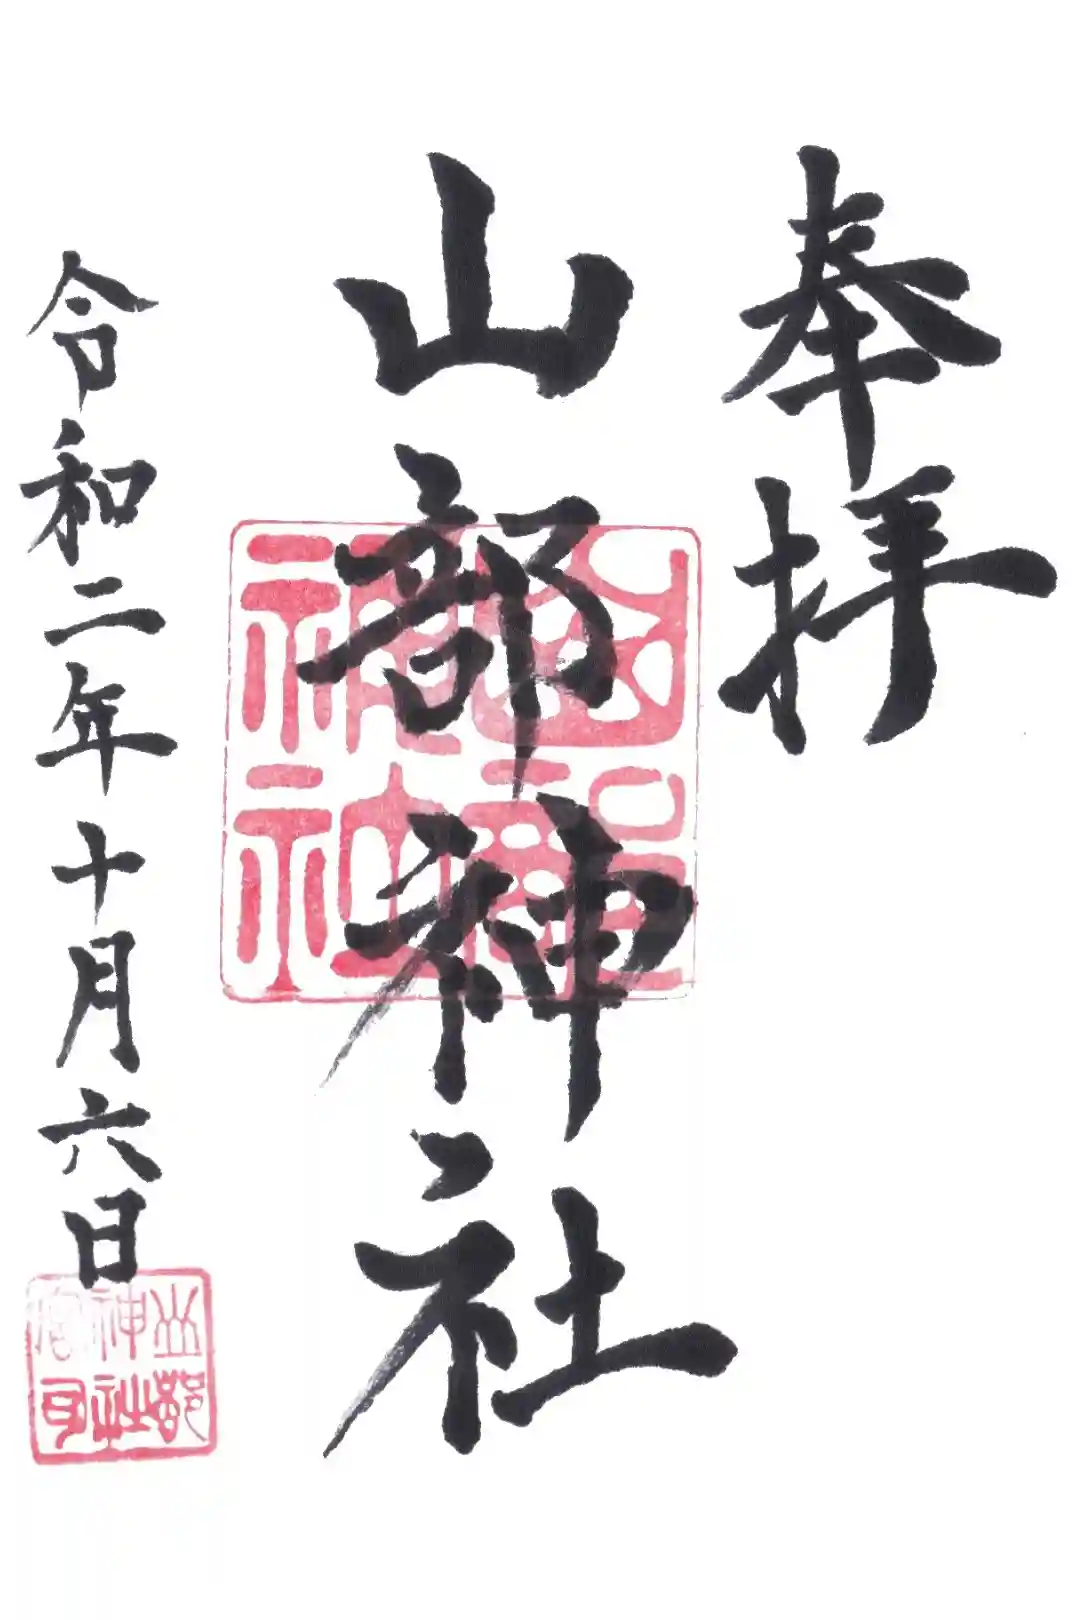 奉拝
山部神社
山部神社
令和二年十月六日
山部神社宮司